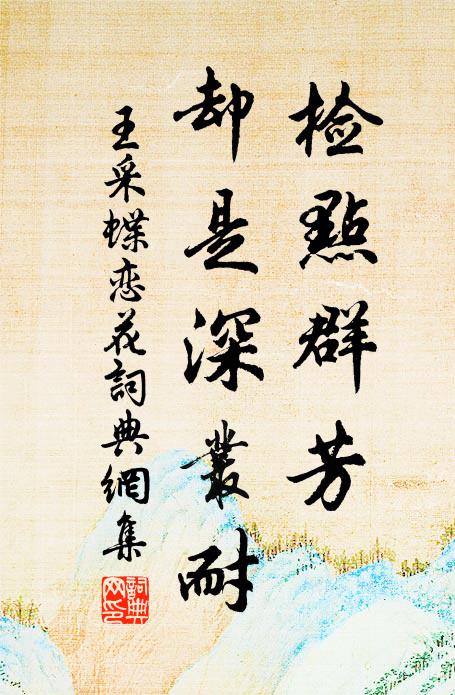 检點群芳
却是深叢耐
王采蝶恋花詞典網集
詞典网印